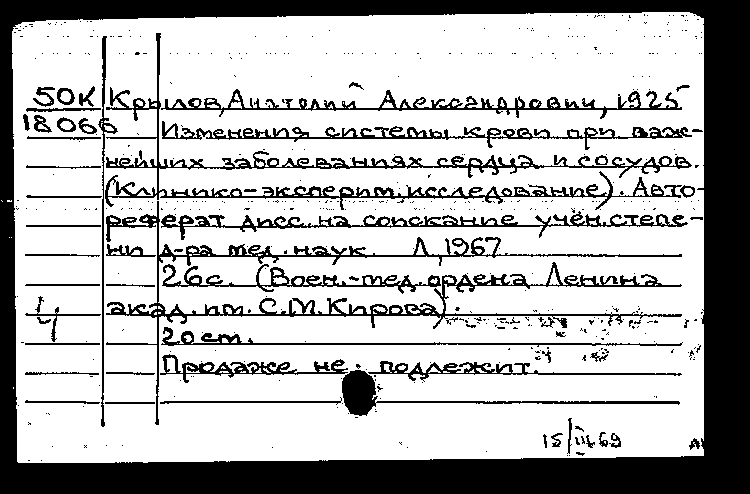 50К Крылов, Анатолий Александрович, 1925
18066 Изменения системы крови при важ-
нейших заболеваниях сердца и сосудов.
(Клинико-эксперим. исследование). Авто-
реферат дисс. на соискание учён. степе-
ни д-ра мед. наук. Л, 1967
26с. (Воен.-мед. ордена Ленина
акад. им. С.М. Кирова).
20 см.
Продаже не подлежит.
15/III 69